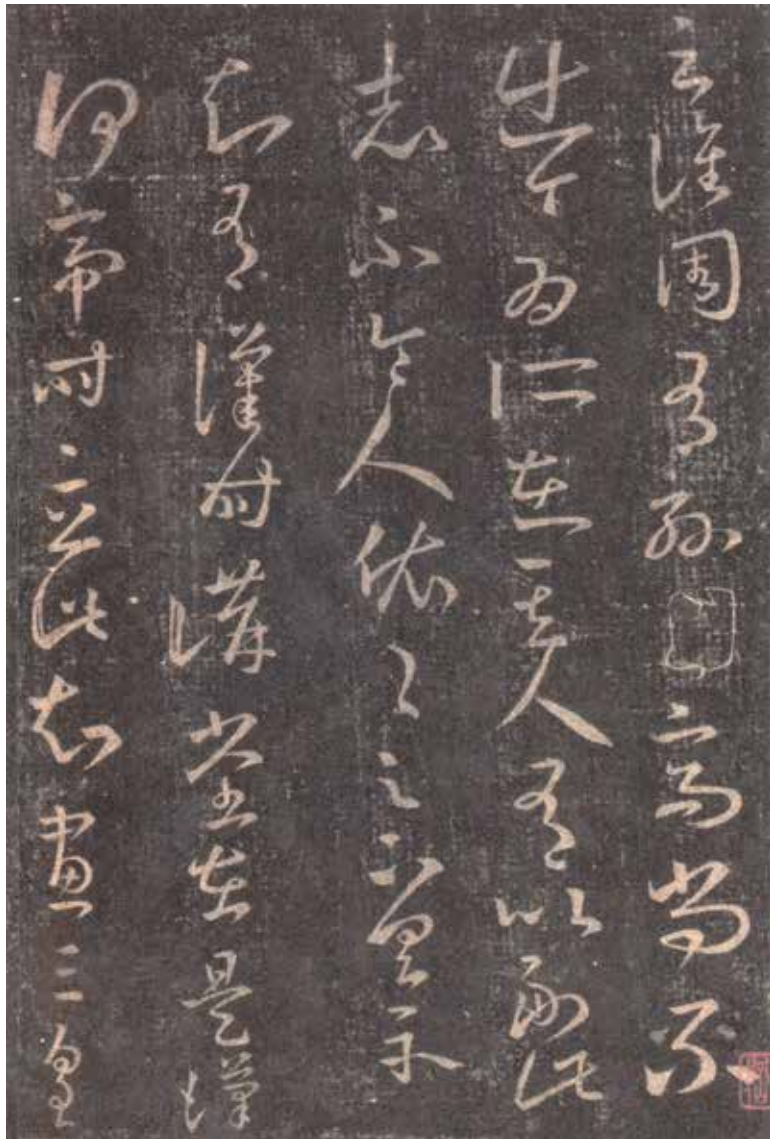 云譙周有孫高尚不
出今為所在其人有以副此
志不令人依依足下具示
知有漢時講堂在是漢
何帝時立此知畫三皇